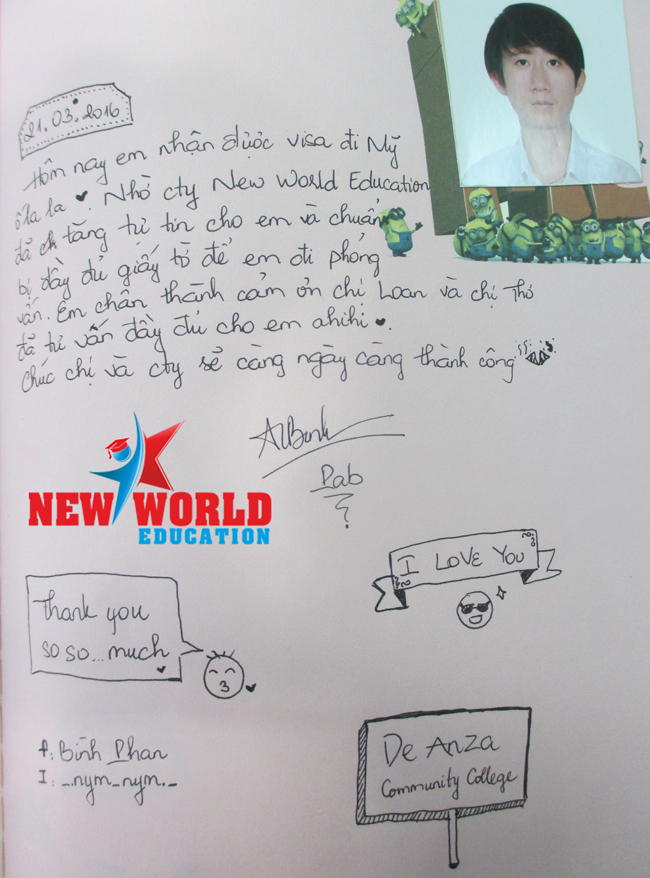 21.03.2016
Hôm nay em nhận được visa đi Mỹ
ôlala ♥. Nhờ cty New World Education
đã ch tăng tự tin cho em và chuẩn
bị đầy đủ giấy tờ để em đi phỏng
vấn. Em chân thành cảm ơn chị Loan và chị Thơ
đã tư vấn đầy đủ cho em ahihi ♥.
Chúc chị và cty sẽ càng ngày càng thành công
Pab
NEW WORLD
EDUCATION
I LOVE YOU
Thank you
so so... much
f: Bình Phan
I: _.nym_nym._
De Anza
Community College